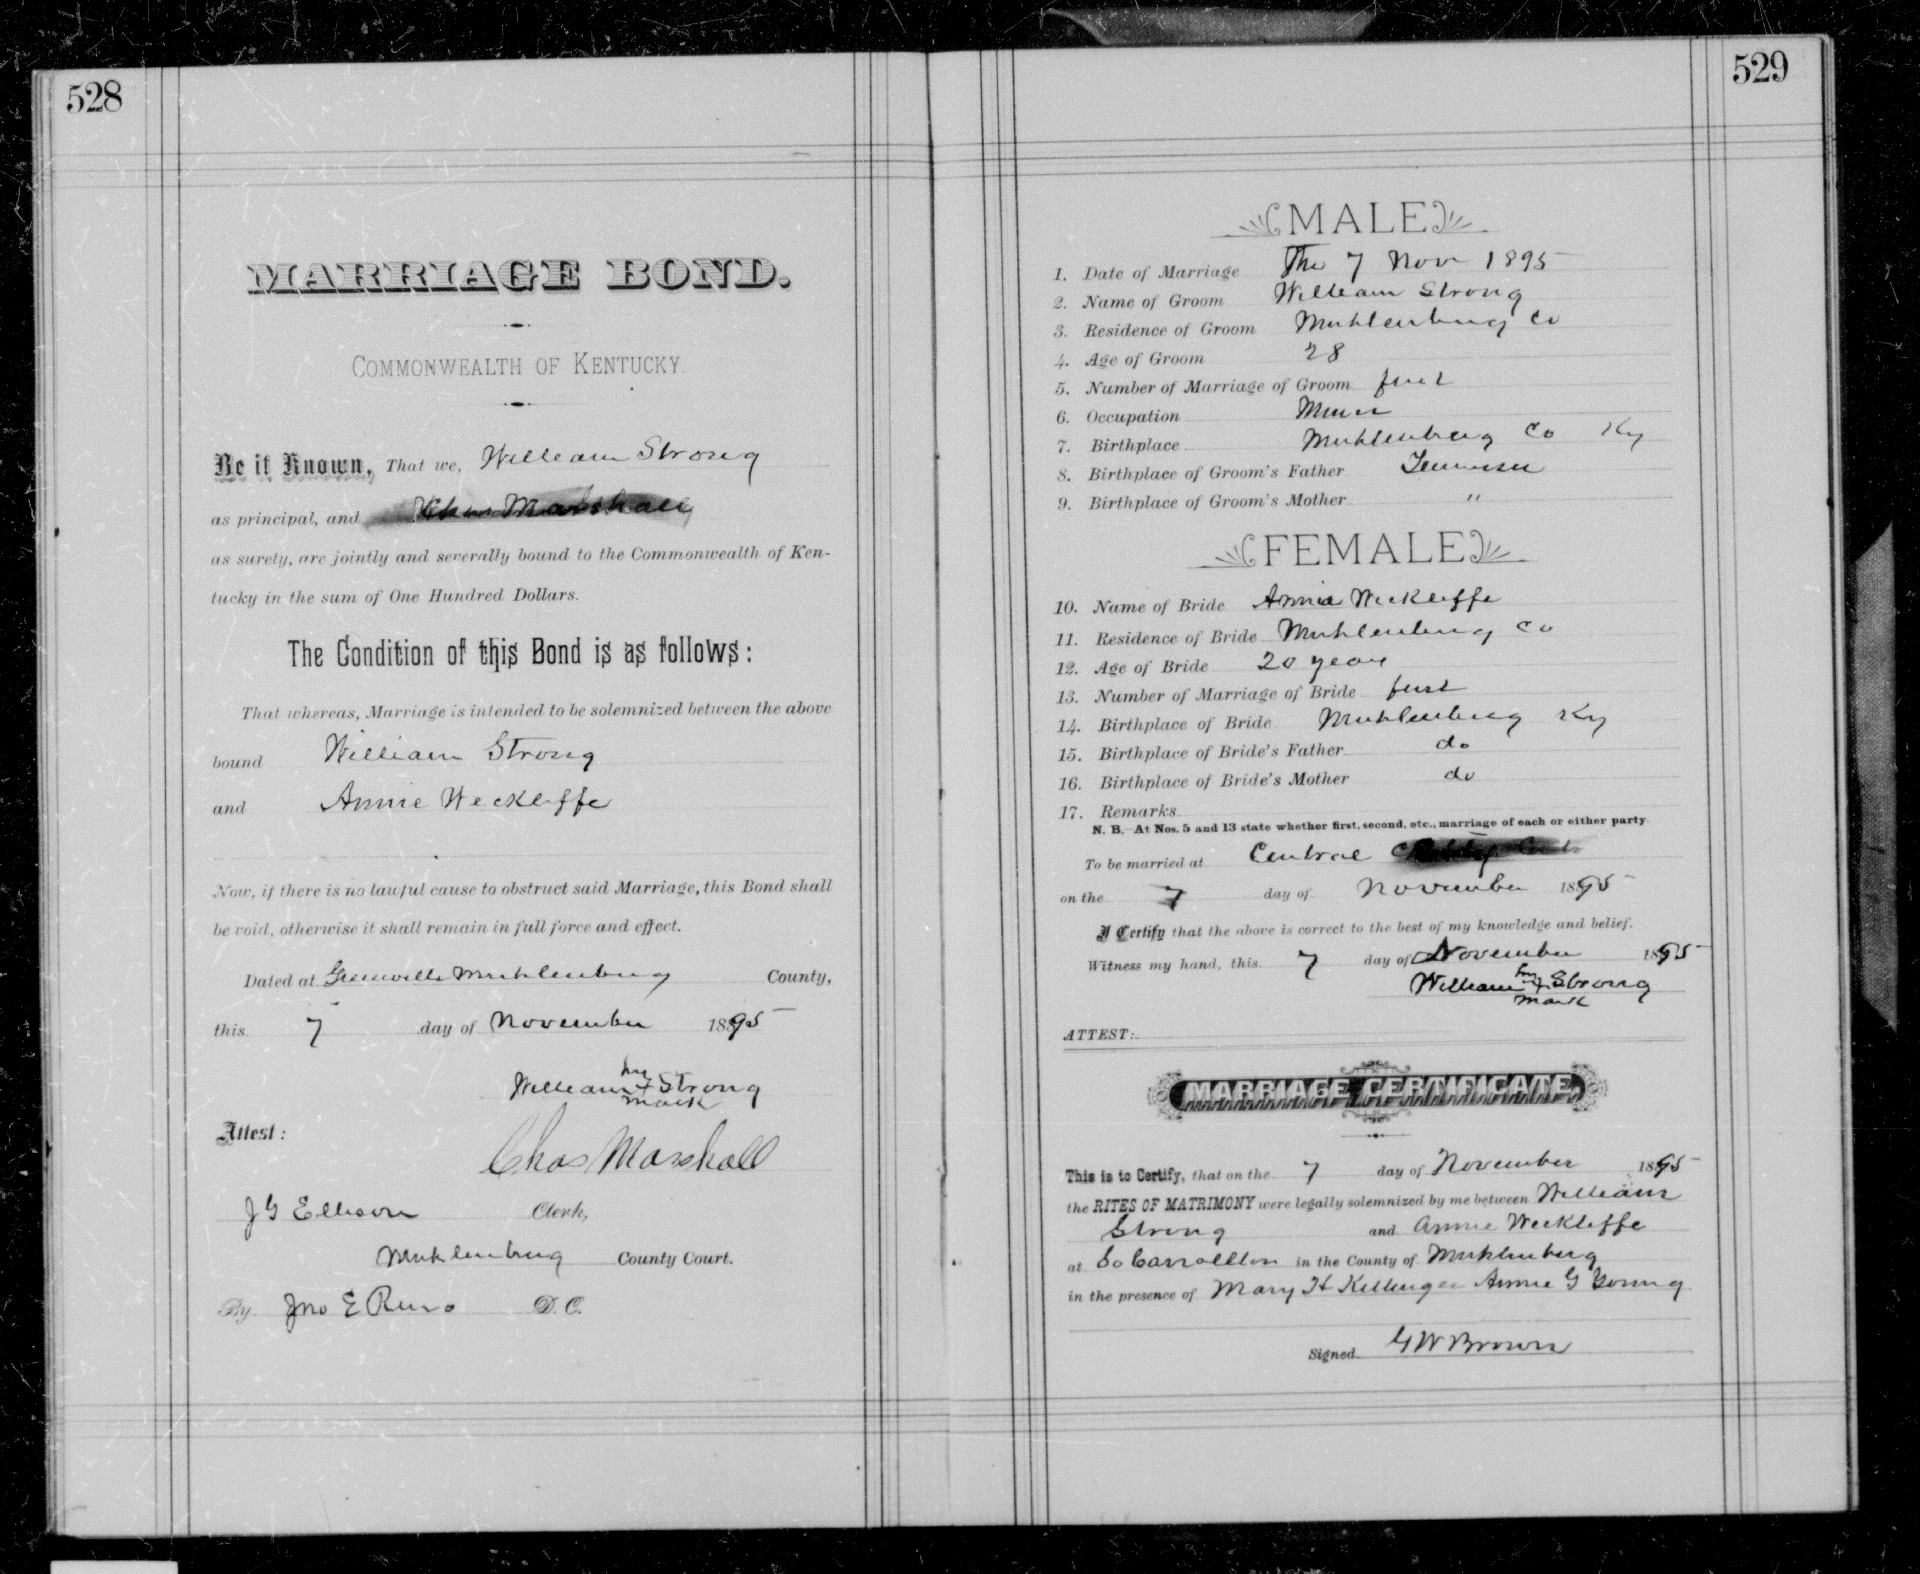 528
MARRIAGE BOND.
COMMONWEALTH OF KENTUCKY
Be it Known, That we, William Strong
as principal, and Chas Marshall
as surety, are jointly and severally bound to the Commonwealth of Ken-
tucky in the sum of One Hundred Dollars.
The Condition of this Bond is as follows:
That whereas, Marriage is intended to be solemnized between the above
bound William Strong
and Annie Weckliffe
Now, if there is no lawful cause to obstruct said Marriage, this Bond shall
be void, otherwise it shall remain in full force and effect.
Dated at Greenville Muhlenburg County,
this 7 day of November 1895
William his x mark Strong
Attest:
Chas Marshall
J G Ellison Clerk,
Muhlenburg County Court.
By Jno E Reno D. C.
529
MALE
1. Date of Marriage The 7 Nov 1895
2. Name of Groom William Strong
3. Residence of Groom Muhlenburg Co
4. Age of Groom 28
5. Number of Marriage of Groom first
6. Occupation Miner
7. Birthplace Muhlenburg Co Ky
8. Birthplace of Groom's Father Tennessee
9. Birthplace of Groom's Mother "
FEMALE
10. Name of Bride Annie Weckliffe
11. Residence of Bride Muhlenburg Co
12. Age of Bride 20 years
13. Number of Marriage of Bride first
14. Birthplace of Bride Muhlenburg Ky
15. Birthplace of Bride's Father do
16. Birthplace of Bride's Mother do
17. Remarks
N. B.—At Nos. 5 and 13 state whether first, second, etc., marriage of each or either party
To be married at Central City
on the 7 day of November 1895
I Certify that the above is correct to the best of my knowledge and belief.
Witness my hand, this 7 day of November 1895
William his x mark Strong
ATTEST:
MARRIAGE CERTIFICATE.
This is to Certify, that on the 7 day of November 1895
the RITES OF MATRIMONY were legally solemnized by me between William
Strong and Annie Weckliffe
at So Carrollton in the County of Muhlenburg
in the presence of Mary H Killinger Annie G Young
Signed G W Brown